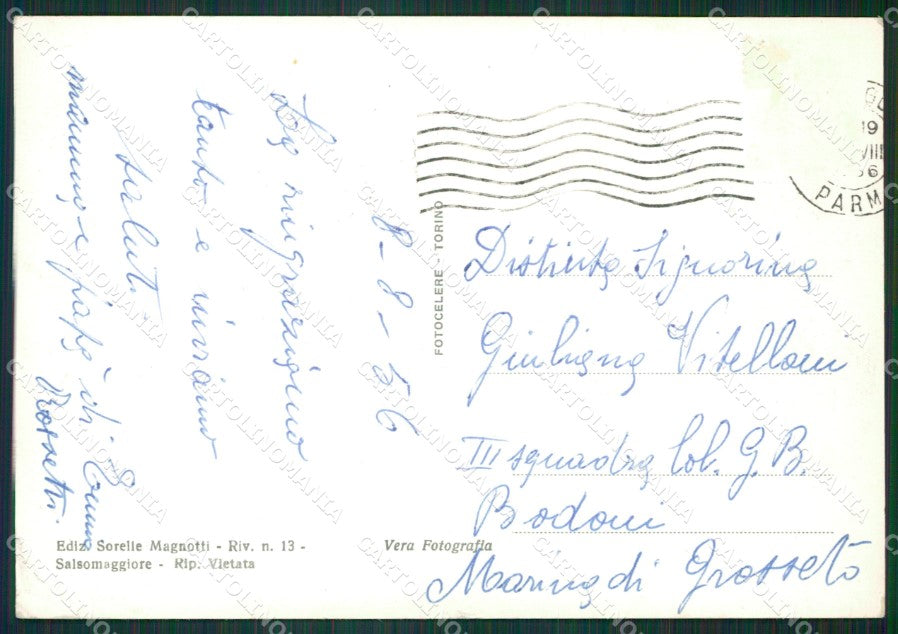 8-8-56
La ringraziano
tanto e inviano
saluti
mamma e papà di Emma
Rossetti.
FOTOCELERE - TORINO
19
VIII
56
PARM
Distinta Signorina
Giuliana Vitelloni
III squadra Col. G. B.
Bodoni
Marina di Grosseto
Ediz. Sorelle Magnotti - Riv. n. 13 -
Salsomaggiore - Rip. Vietata
Vera Fotografia
CARTOLINOMANIA